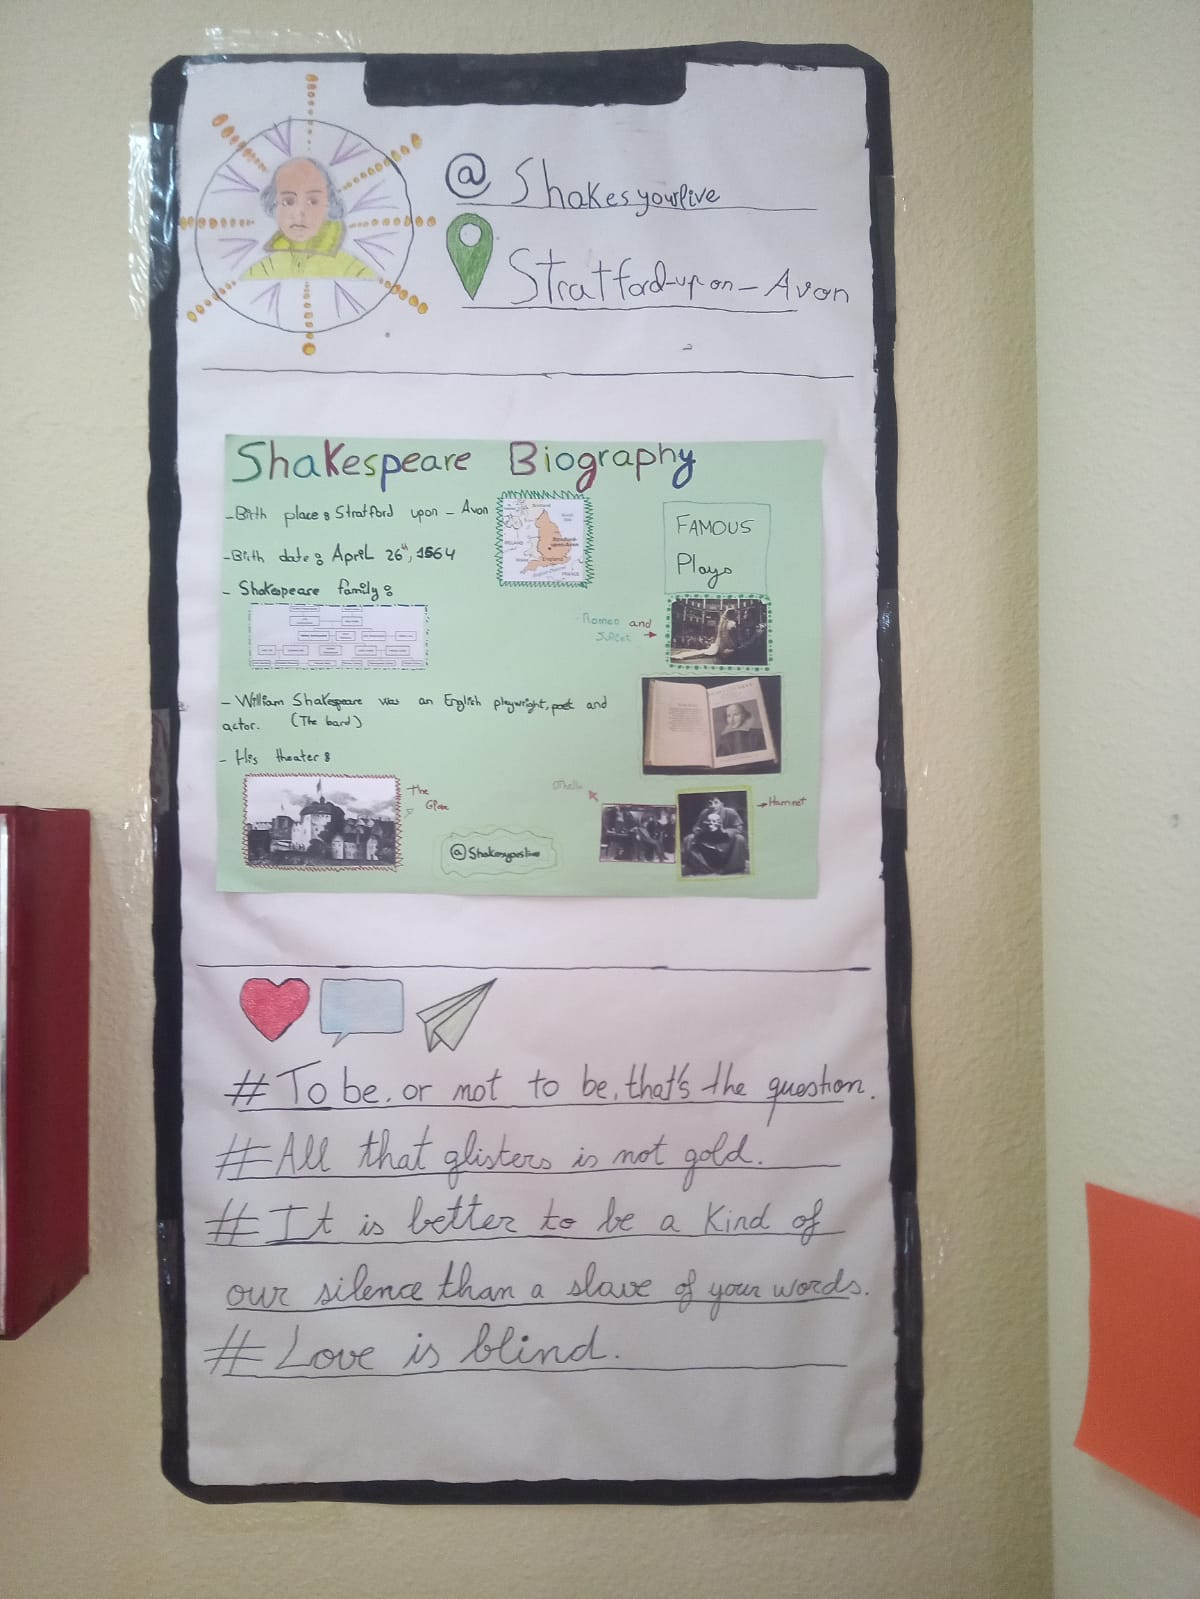 @ Shakesyourlive
Stratford-upon-Avon
Shakespeare Biography
- Birth place: Stratford upon - Avon
- Birth date: April 26th, 1564
- Shakespeare family:
- William Shakespeare was an English playwright, poet and
actor. (The bard)
- His theater:
The
Globe
@Shakesyourlive
FAMOUS
Plays
Romeo and
Juliet
Othello
Hamnet
# To be, or not to be, that's the question.
# All that glisters is not gold.
# It is better to be a kind of
our silence than a slave of your words.
# Love is blind.